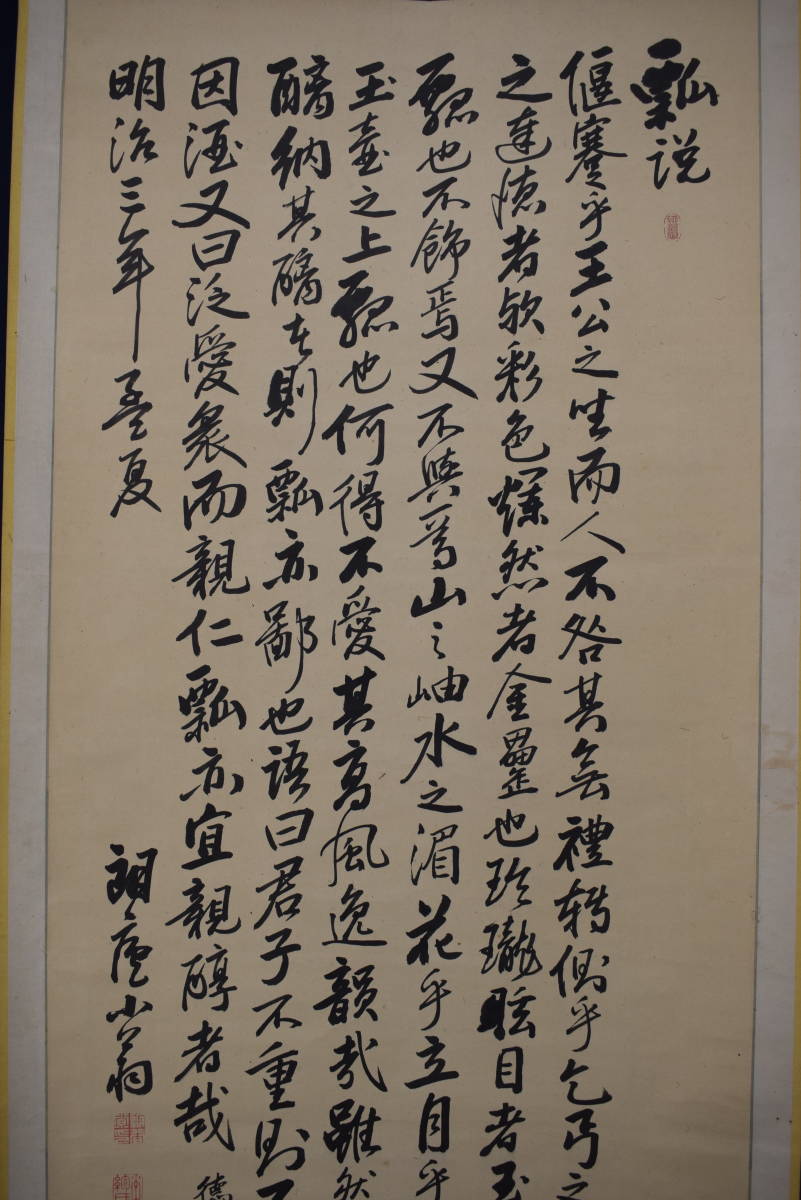 瓢説
偃蹇乎王公之坐而人不咎其無禮轉側乎乞丐之
之達德者欤彩色爛然者金罍也玲瓏眩目者玉
瓢也不飾焉又不與焉山之岫水之湄花乎立月乎
玉壺之上瓢也何得不愛其高風逸韻哉雖然
醨納其醨去則瓢亦鄙也語曰君子不重則不
因酒又曰泛愛衆而親仁瓢亦宜親醇者哉
明治三年孟夏
朗廬小翁